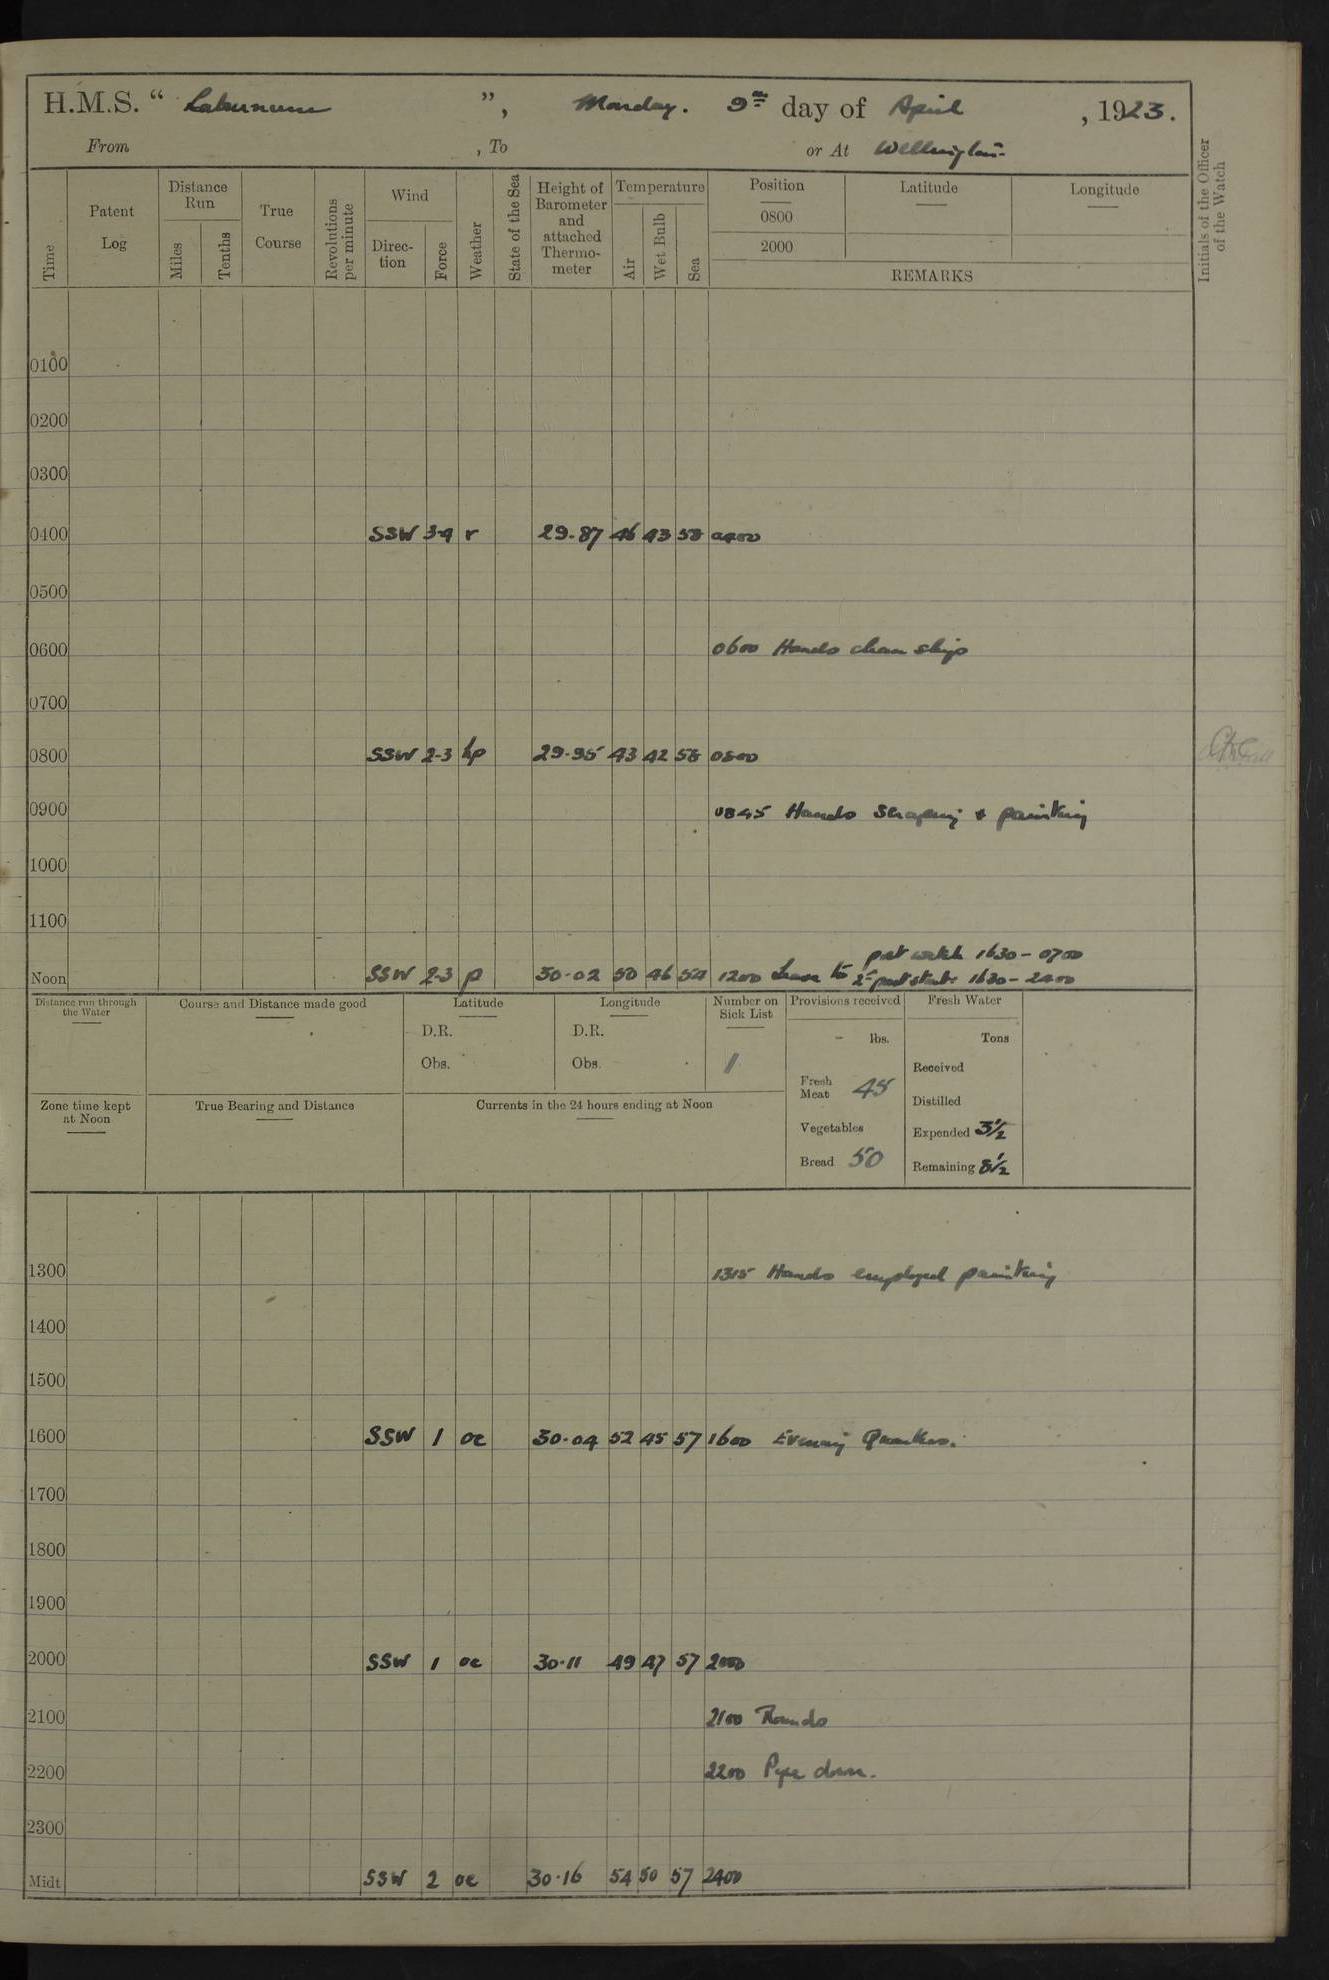 H.M.S. “ Laburnum ”, Monday. 9th day of April, 1923.
From , To or At Wellington
Time
Patent Log
Distance Run
Miles
Tenths
True Course
Revolutions per minute
Wind
Direc-tion
Force
Weather
State of the Sea
Height of Barometer and attached Thermo-meter
Temperature
Air
Wet Bulb
Sea
Position
Latitude
Longitude
0800
2000
REMARKS
Initials of the Officer of the Watch
0100
0200
0300
0400 SSW 3-4 r 29.87 46 43 58 0400
0500
0600 0600 Hands clean ship
0700
0800 SSW 2-3 hp 29.95 43 42 58 0800
0900 0845 Hands scraping & painting
1000
1100
part watch 1630 - 0700
Noon SSW 2-3 p 30.02 50 46 1200 Leave to 2nd part starbd 1630 - 2400
Distance run through the Water
Course and Distance made good
Latitude
D.R.
Obs.
Longitude
D.R.
Obs.
Number on Sick List
1
Provisions received
- lbs.
Fresh Meat 45
Vegetables
Bread 50
Fresh Water
Tons
Received
Distilled
Expended 3½
Remaining 8½
Zone time kept at Noon
True Bearing and Distance
Currents in the 24 hours ending at Noon
1300 1315 Hands employed painting
1400
1500
1600 SSW 1 oc 30.04 52 45 57 1600 Evening Quarters.
1700
1800
1900
2000 SSW 1 oc 30.11 49 47 57 2000
2100 2100 Rounds
2200 2200 Pipe down.
2300
Midt SSW 2 oc 30.16 54 50 57 2400